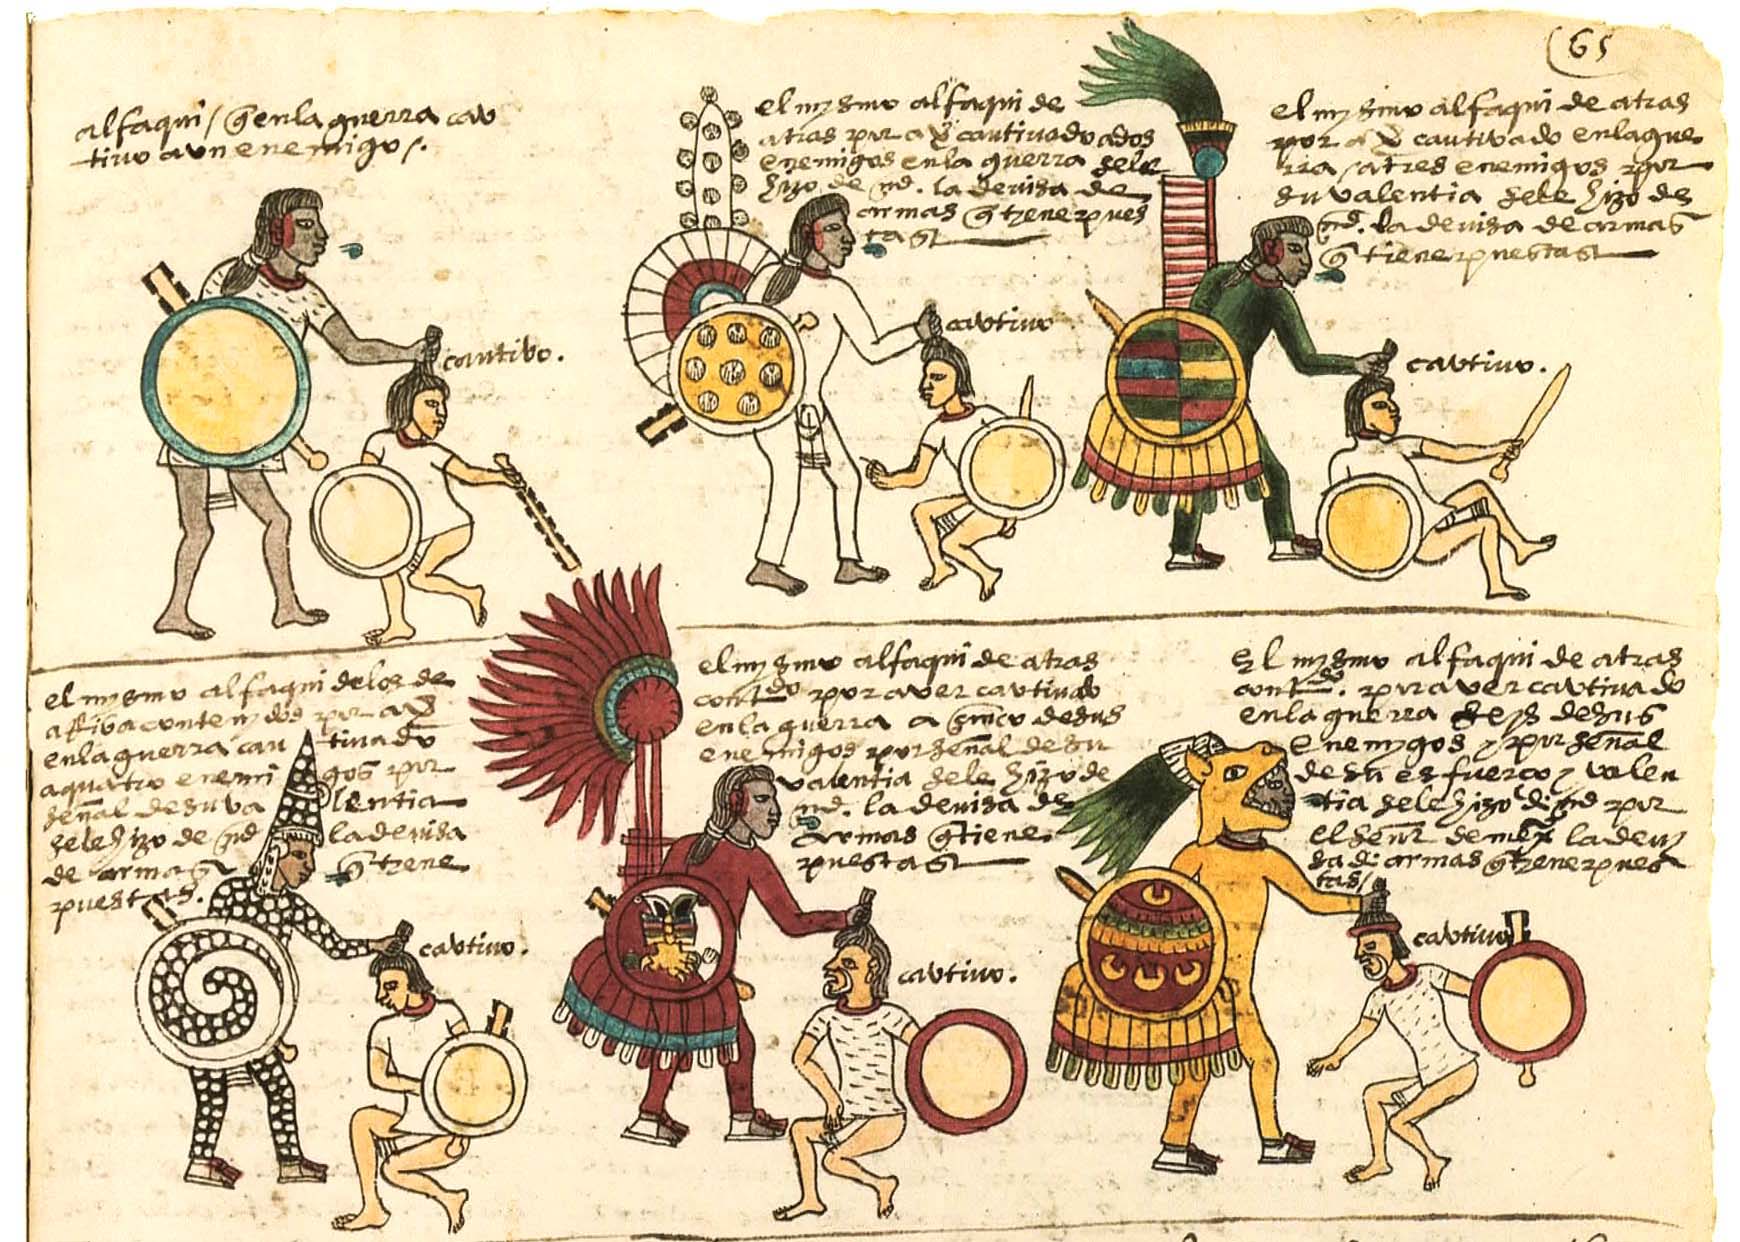 65
alfaqui / q̃ en la guerra cau
tivo a un enemigo /.
cautivo.
el mysmo alfaqui de
atras por aỽ cautivado a dos
enemigos en la guerra sele
hizo de md. la devisa de
armas q̃ tiene pues
tas
cautivo
el mysmo alfaqui de atras
por aỽ cautivado en la gue
rra / a tres enemigos por
su valentia sele hizo de
md. la devisa de armas
q̃ tiene puestas
cautivo.
el mysmo alfaqui de los de
arriba contenydos por aỽ
en la guerra cau tivado
a quatro enemi gos por
señal de su va lentia
sele hizo de md la devisa
de armas q̃ tiene
puestas.
cautivo.
el mysmo alfaqui de atras
contdo por aver cautivado
en la guerra a sinco de sus
enemigos por señal de su
valentia sele hizo de
md. la devisa de
armas q̃ tiene
puestas
cautivo.
El mysmo alfaqui de atras
contdo. por aver cautivado
en la guerra seys de sus
enemygos y por señal
de su esfuerço y valen
tia sele hizo de md por
el señor de mexco la devi
sa de armas q̃ tiene pues
tas /
cautivo